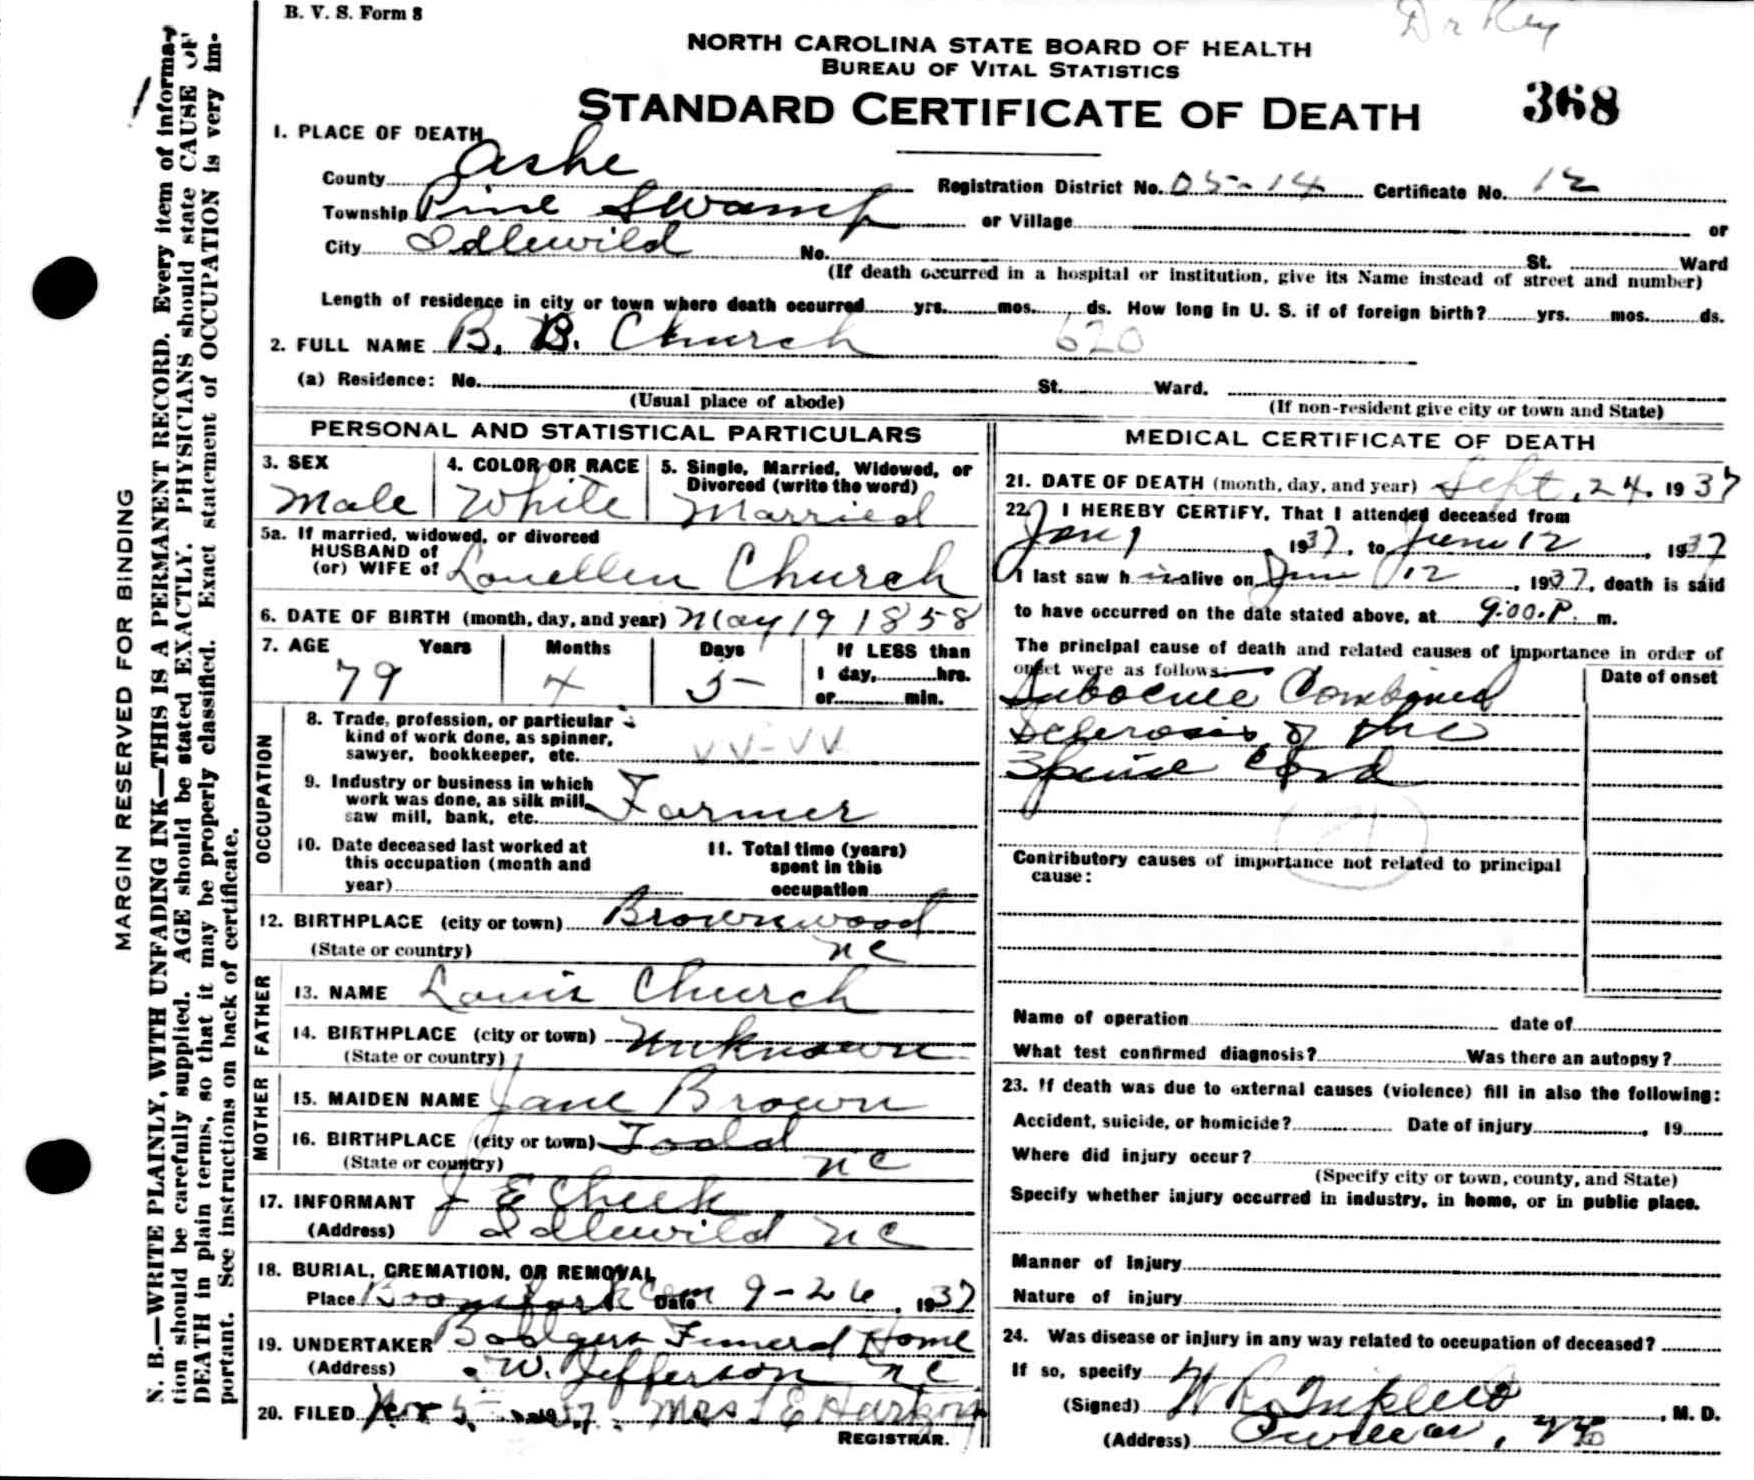 B. V. S. Form 8
Dr Key
NORTH CAROLINA STATE BOARD OF HEALTH
BUREAU OF VITAL STATISTICS
STANDARD CERTIFICATE OF DEATH
368
1. PLACE OF DEATH
County Ashe Registration District No. 05-14 Certificate No. 12
Township Pine Swamp or Village or
City Idlewild No. St. Ward
(If death occurred in a hospital or institution, give its Name instead of street and number)
Length of residence in city or town where death occurred yrs. mos. ds. How long in U. S. if of foreign birth? yrs. mos. ds.
2. FULL NAME B. B. Church 620
(a) Residence: No. St. Ward.
(Usual place of abode) (If non-resident give city or town and State)
PERSONAL AND STATISTICAL PARTICULARS
3. SEX 4. COLOR OR RACE 5. Single, Married, Widowed, or Divorced (write the word)
Male White Married
5a. If married, widowed, or divorced
HUSBAND of
(or) WIFE of Louellen Church
6. DATE OF BIRTH (month, day, and year) May 19 1858
7. AGE Years Months Days If LESS than
79 4 5 1 day, hrs.
or min.
OCCUPATION
8. Trade, profession, or particular
kind of work done, as spinner,
sawyer, bookkeeper, etc. VV-VV
9. Industry or business in which
work was done, as silk mill,
saw mill, bank, etc. Farmer
10. Date deceased last worked at
this occupation (month and
year)
11. Total time (years)
spent in this
occupation
12. BIRTHPLACE (city or town) Brownwood
(State or country) NC
FATHER
13. NAME Louis Church
14. BIRTHPLACE (city or town) Unknown
(State or country)
MOTHER
15. MAIDEN NAME Jane Brown
16. BIRTHPLACE (city or town) Todd
(State or country) NC
17. INFORMANT J E Cheek
(Address) Idlewild NC
18. BURIAL, CREMATION, OR REMOVAL
Place Cem Date 9-26, 1937
19. UNDERTAKER Badgers Funeral Home
(Address) W. Jefferson NC
20. FILED 5 1937. Mrs
REGISTRAR.
MEDICAL CERTIFICATE OF DEATH
21. DATE OF DEATH (month, day, and year) Sept. 24. 1937
22. I HEREBY CERTIFY, That I attended deceased from
Jan 1, 1937, to June 12, 1937
I last saw him alive on June 12, 1937, death is said
to have occurred on the date stated above, at 9:00.P. m.
The principal cause of death and related causes of importance in order of
onset were as follows:
Date of onset
Subacute Combined
Sclerosis of the
Spinal Cord
Contributory causes of importance not related to principal
cause:
Name of operation date of
What test confirmed diagnosis? Was there an autopsy?
23. If death was due to external causes (violence) fill in also the following:
Accident, suicide, or homicide? Date of injury, 19
Where did injury occur?
(Specify city or town, county, and State)
Specify whether injury occurred in industry, in home, or in public place.
Manner of Injury
Nature of injury
24. Was disease or injury in any way related to occupation of deceased?
If so, specify
(Signed) , M. D.
(Address) , NC
MARGIN RESERVED FOR BINDING
N. B.—WRITE PLAINLY, WITH UNFADING INK—THIS IS A PERMANENT RECORD. Every item of informa-
tion should be carefully supplied. AGE should be stated EXACTLY. PHYSICIANS should state CAUSE OF
DEATH in plain terms, so that it may be properly classified. Exact statement of OCCUPATION is very im-
portant. See instructions on back of certificate.